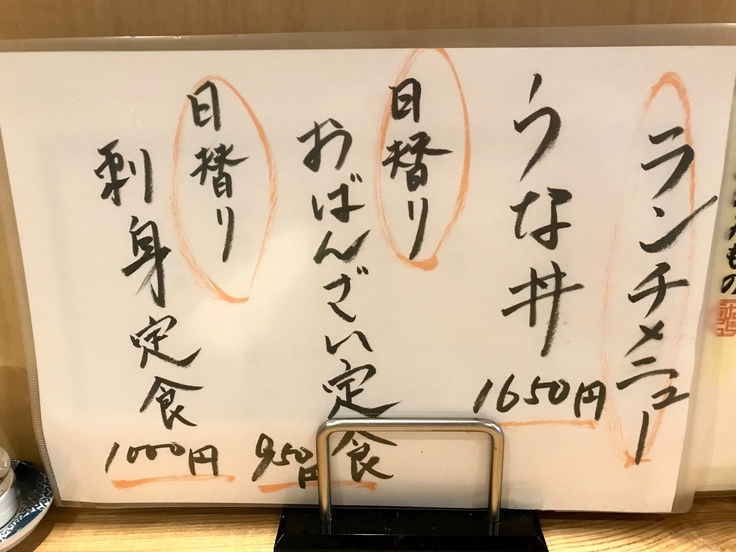 ランチメニュー
うな丼
1650円
日替り
おばんざい定食
950円
日替り
刺身定食
1000円